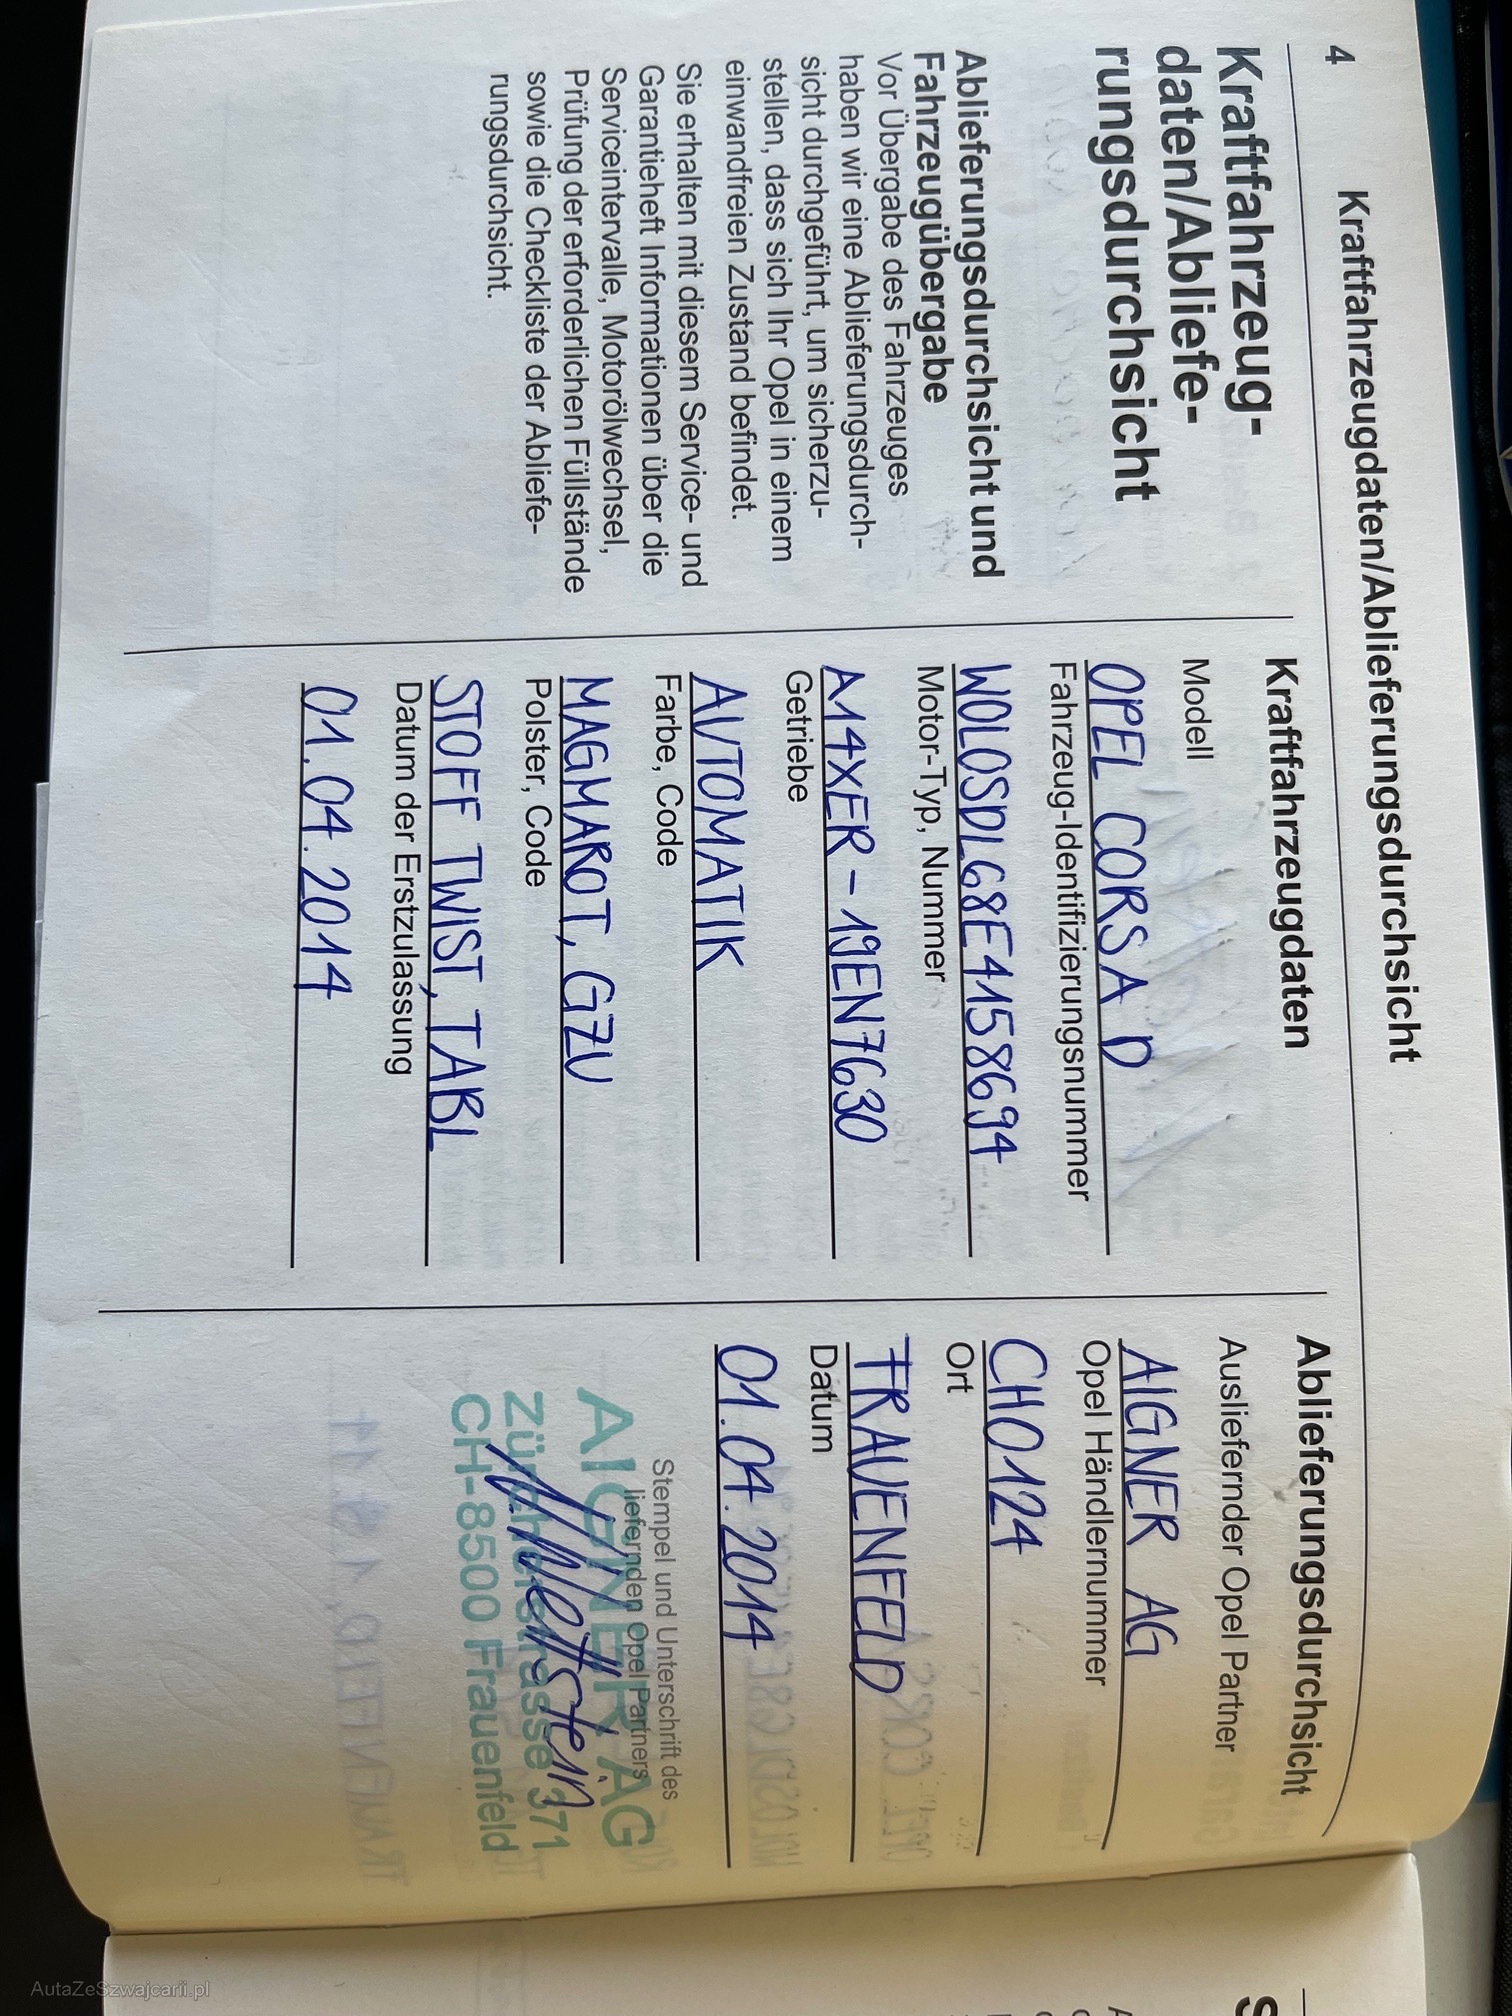 4
Kraftfahrzeugdaten/Ablieferungsdurchsicht
Kraftfahrzeug-
daten/Abliefe-
rungsdurchsicht
Ablieferungsdurchsicht und
Fahrzeugübergabe
Vor Übergabe des Fahrzeuges
haben wir eine Ablieferungsdurch-
sicht durchgeführt, um sicherzu-
stellen, dass sich Ihr Opel in einem
einwandfreien Zustand befindet.
Sie erhalten mit diesem Service- und
Garantieheft Informationen über die
Serviceintervalle, Motorölwechsel,
Prüfung der erforderlichen Füllstände
sowie die Checkliste der Abliefe-
rungsdurchsicht.
Kraftfahrzeugdaten
Modell
OPEL CORSA D
Fahrzeug-Identifizierungsnummer
W0L0SDL68E4158694
Motor-Typ, Nummer
A14XER - 19EN7630
Getriebe
AUTOMATIK
Farbe, Code
MAGMAROT, GZU
Polster, Code
STOFF TWIST, TABL
Datum der Erstzulassung
01.04.2014
Ablieferungsdurchsicht
Ausliefernder Opel Partner
AIGNER AG
Opel Händlernummer
CH0124
Ort
FRAUENFELD
Datum
01.04.2014
Stempel und Unterschrift des
liefernden Opel Partners
AIGNER AG
Zürcherstrasse 371
CH-8500 Frauenfeld
AutaZeSzwajcarii.pl